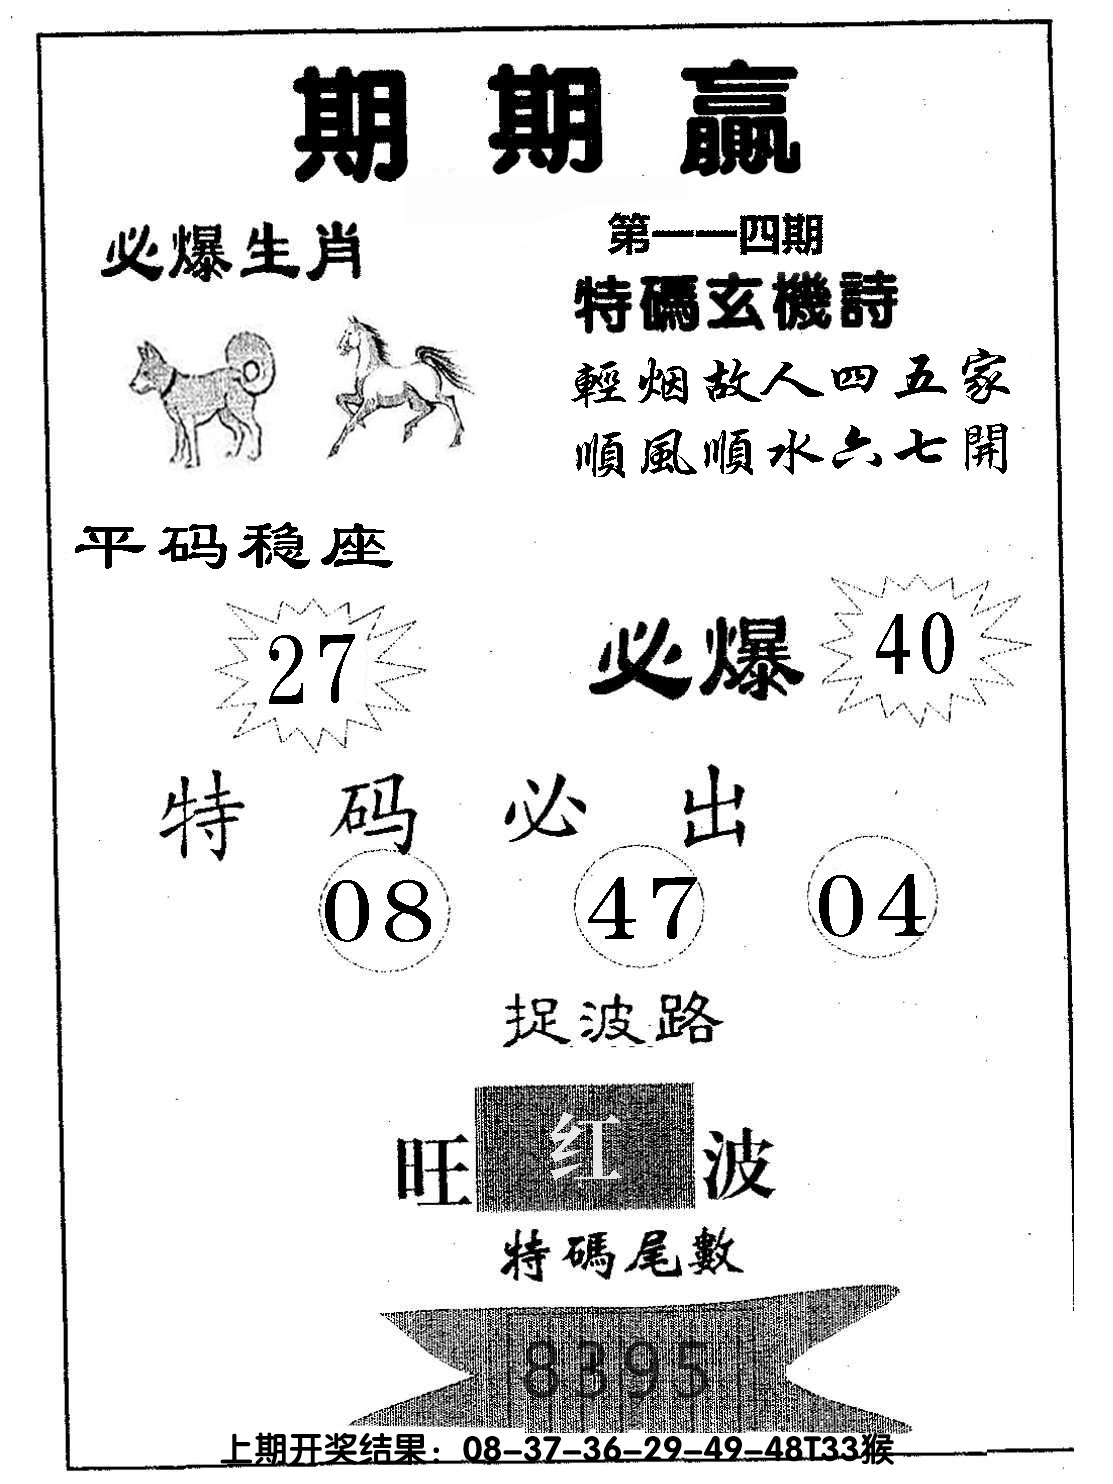 期期贏
第一一四期
必爆生肖
特碼玄機詩
輕烟故人四五家
順風順水六七開
平码稳座
27
必爆
40
特码必出
08 47 04
捉波路
旺红波
特碼尾數
8395
上期开奖结果：08-37-36-29-49-48T33猴